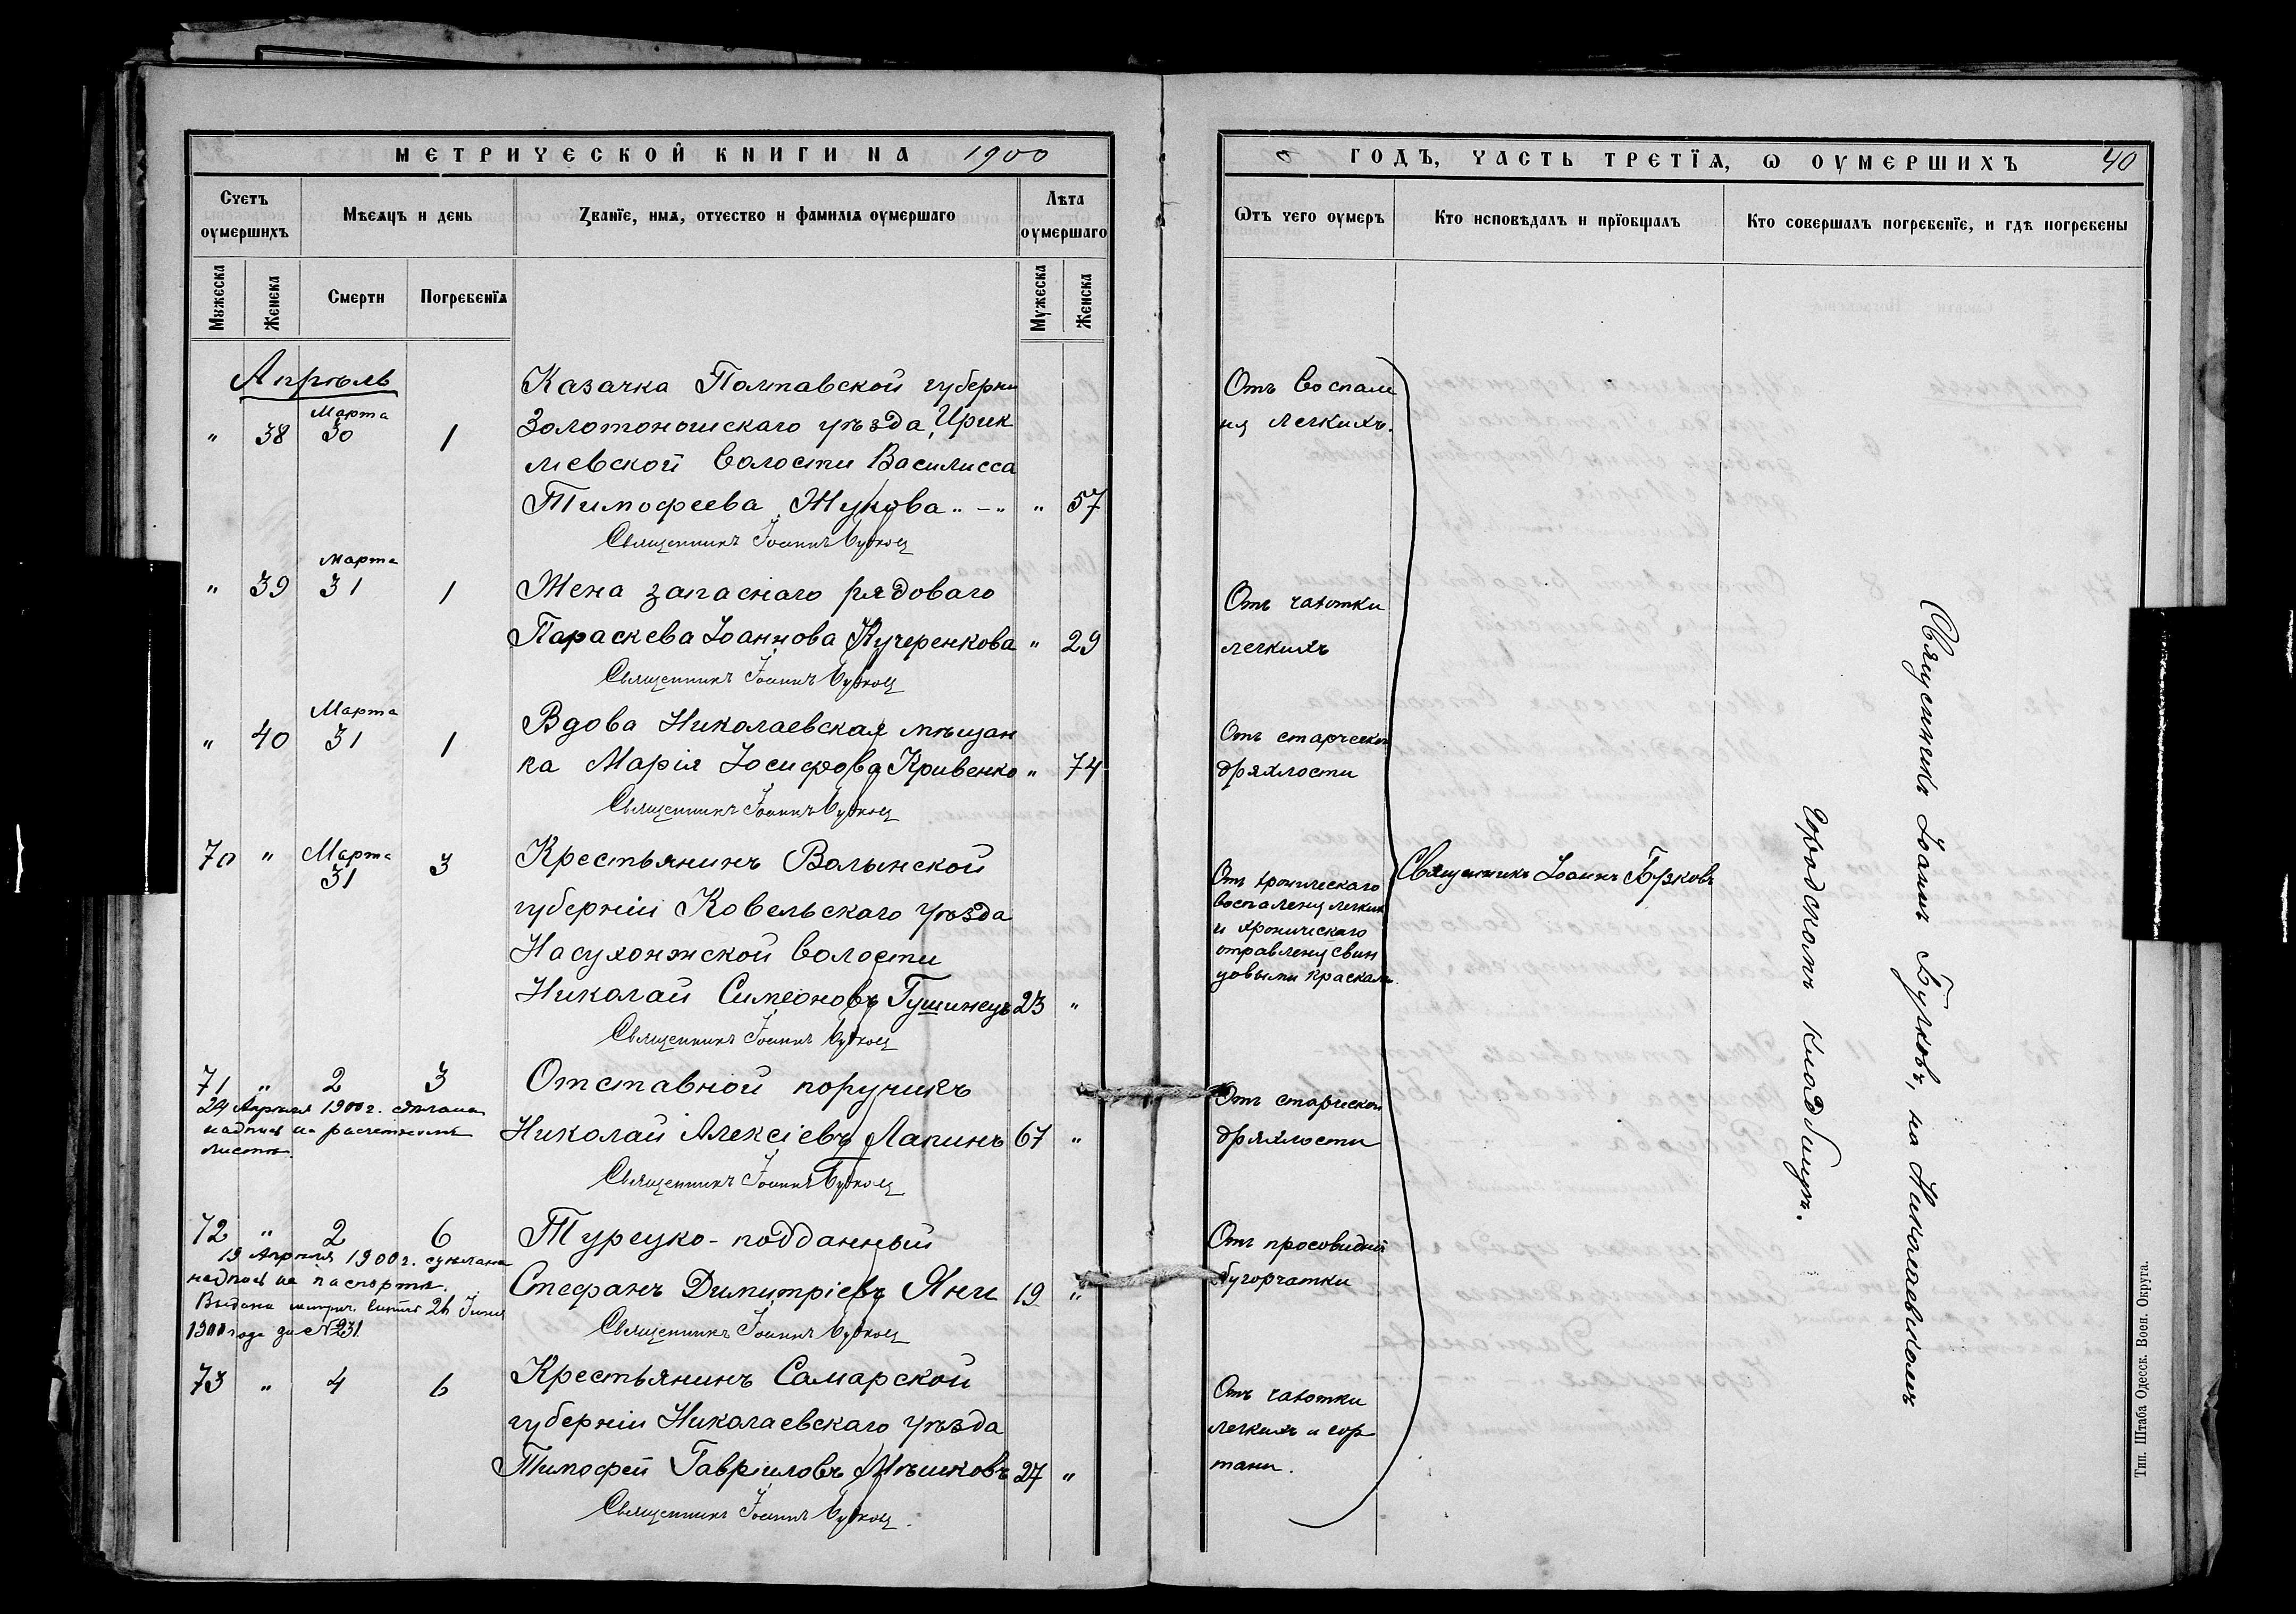 МЕТРИЧЕСКОЙ КНИГИ НА 1900
Счетъ оумершихъ
Мѣсяцъ и день
Званїе, имя, отчество и фамилія оумершаго
Лѣта оумершаго
Мужеска
Женска
Смерти
Погребенїя
Мужеска
Женска
Апрѣль
Казачка Полтавской губерніи
" 38 Марта 30 1
Золотоношскаго уѣзда, Ирик
лѣевской волости Василисса
Тимофеева Жукова " 57
Священникъ Іоаннъ Бурковъ
" 39 Марта 31 1
Жена запаснаго рядоваго
Параскева Іоаннова Кучеренкова " 29
Священникъ Іоаннъ Бурковъ
" 40 Марта 31 1
Вдова Николаевская мѣщан
ка Марія Іосифова Кривенко " 74
Священникъ Іоаннъ Бурковъ
70 " Марта 31 3
Крестьянинъ Волынской
губерніи Ковельскаго уѣзда
Несухоижской волости
Николай Симеоновъ Гушинецъ 23 "
Священникъ Іоаннъ Бурковъ
71 " 2 3
Отставной поручикъ
24 Апрѣля 1900 г. сдѣлана
надпись на расчетномъ
листѣ.
Николай Алексіевъ Лапинъ 67 "
Священникъ Іоаннъ Бурковъ
72 " 2 6
Турецко-подданный
19 Апрѣля 1900 г. сдѣлана
надпись на паспортѣ.
Выдана метрич. выпись 26 Іюня
1900 года за № 231
Стефанъ Димитріевъ Яни 19 "
Священникъ Іоаннъ Бурковъ
73 " 4 6
Крестьянинъ Самарской
губерніи Николаевскаго уѣзда
Тимофей Гавриловъ Мѣшковъ 27 "
Священникъ Іоаннъ Бурковъ.
ГОДЪ, ЧАСТЬ ТРЕТЇЯ, Ѡ ОУМЕРШИХЪ 40
Ѡтъ чего оумеръ
Кто исповѣдалъ и прїобщалъ
Кто совершалъ погребенїе, и гдѣ погребены
Отъ воспале
нія легкихъ.
Отъ чахотки
легкихъ
Отъ старческой
дряхлости
Отъ хроническаго
воспаленія легкихъ
и хроническаго
отравленія свин
цовыми красками.
Священникъ Іоаннъ Бурковъ
Отъ старческой
дряхлости
Отъ просовидной
бугорчатки
Отъ чахотки
легкихъ и гор
тани.
Священникъ Іоаннъ Бурковъ, на Николаевскомъ
Городскомъ кладбищѣ.
Тип. Штаба Одесск. Воен. Округа.